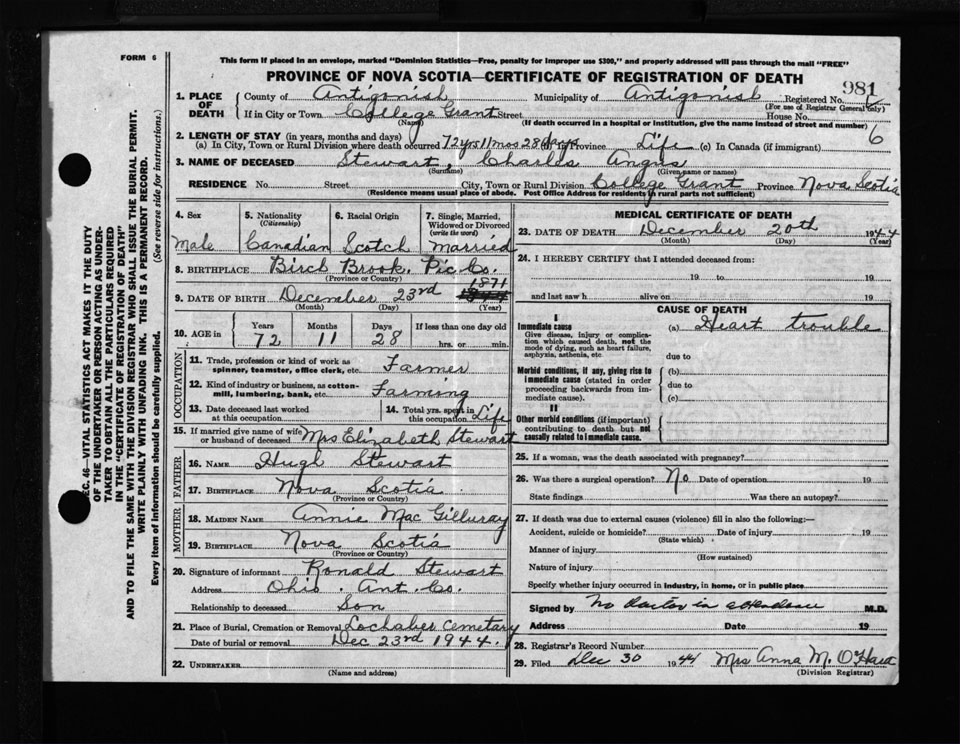 FORM 6
This form if placed in an envelope, marked "Dominion Statistics—Free, penalty for improper use $300," and properly addressed will pass through the mail "FREE"
PROVINCE OF NOVA SCOTIA—CERTIFICATE OF REGISTRATION OF DEATH
981
1. PLACE OF DEATH
County of Antigonish Municipality of Antigonish Registered No.
(For use of Registrar General only)
If in City or Town College Grant Street House No.
(Name) (If death occurred in a hospital or institution, give the name instead of street and number)
6
2. LENGTH OF STAY (in years, months and days)
(a) In City, Town or Rural Division where death occurred 72 yrs 11 mos 28 days (b) In Province Life (c) In Canada (if immigrant)
3. NAME OF DECEASED Stewart, Charles Angus
(Surname) (Given name or names)
RESIDENCE No. Street City, Town or Rural Division College Grant Province Nova Scotia
(Residence means usual place of abode. Post Office Address for residents in rural parts not sufficient)
4. Sex Male
5. Nationality (Citizenship) Canadian
6. Racial Origin Scotch
7. Single, Married, Widowed or Divorced (write the word) married
8. BIRTHPLACE Birch Brook, Pic Co.
(Province or Country)
1871
9. DATE OF BIRTH December 23rd 1944
(Month) (Day) (Year)
10. AGE in Years 72 Months 11 Days 28 If less than one day old hrs. or min.
OCCUPATION
11. Trade, profession or kind of work as spinner, teamster, office clerk, etc. Farmer
12. Kind of industry or business, as cotton-mill, lumbering, bank, etc. Farming
13. Date deceased last worked at this occupation
14. Total yrs. spent in this occupation Life
15. If married give name of wife or husband of deceased Mrs Elizabeth Stewart
FATHER
16. NAME Hugh Stewart
17. BIRTHPLACE Nova Scotia
(Province or Country)
MOTHER
18. MAIDEN NAME Annie MacGillvray
19. BIRTHPLACE Nova Scotia
(Province or Country)
20. Signature of informant Ronald Stewart
Address Ohio. Ant. Co.
Relationship to deceased Son
21. Place of Burial, Cremation or Removal Lochaber Cemetary
Date of burial or removal Dec 23rd 1944.
22. UNDERTAKER
(Name and address)
MEDICAL CERTIFICATE OF DEATH
23. DATE OF DEATH December 20th 1944
(Month) (Day) (Year)
24. I HEREBY CERTIFY that I attended deceased from:
19 to 19
and last saw h alive on 19
CAUSE OF DEATH
I
Immediate cause
Give disease, injury or complication which caused death, not the mode of dying, such as heart failure, asphyxia, asthenia, etc.
(a) Heart trouble
due to
Morbid conditions, if any, giving rise to immediate cause (stated in order proceeding backwards from immediate cause).
(b)
due to
(c)
II
Other morbid conditions (if important) contributing to death but not causally related to immediate cause.
25. If a woman, was the death associated with pregnancy?
26. Was there a surgical operation? No Date of operation 19
State findings Was there an autopsy?
27. If death was due to external causes (violence) fill in also the following:
Accident, suicide or homicide? Date of injury 19
(State which)
Manner of injury
(How sustained)
Nature of injury
Specify whether injury occurred in industry, in home, or in public place
Signed by No doctor in attendance M.D.
Address Date 19
28. Registrar's Record Number
29. Filed Dec 30 1944 Mrs Anna M. O'Hara
(Division Registrar)
SEC. 46—VITAL STATISTICS ACT MAKES IT THE DUTY
OF THE UNDERTAKER OR PERSON ACTING AS UNDERTAKER TO OBTAIN ALL THE PARTICULARS REQUIRED
IN THE "CERTIFICATE OF REGISTRATION OF DEATH"
AND TO FILE THE SAME WITH THE DIVISION REGISTRAR WHO SHALL ISSUE THE BURIAL PERMIT.
WRITE PLAINLY WITH UNFADING INK. THIS IS A PERMANENT RECORD.
Every item of information should be carefully supplied. (See reverse side for instructions.)